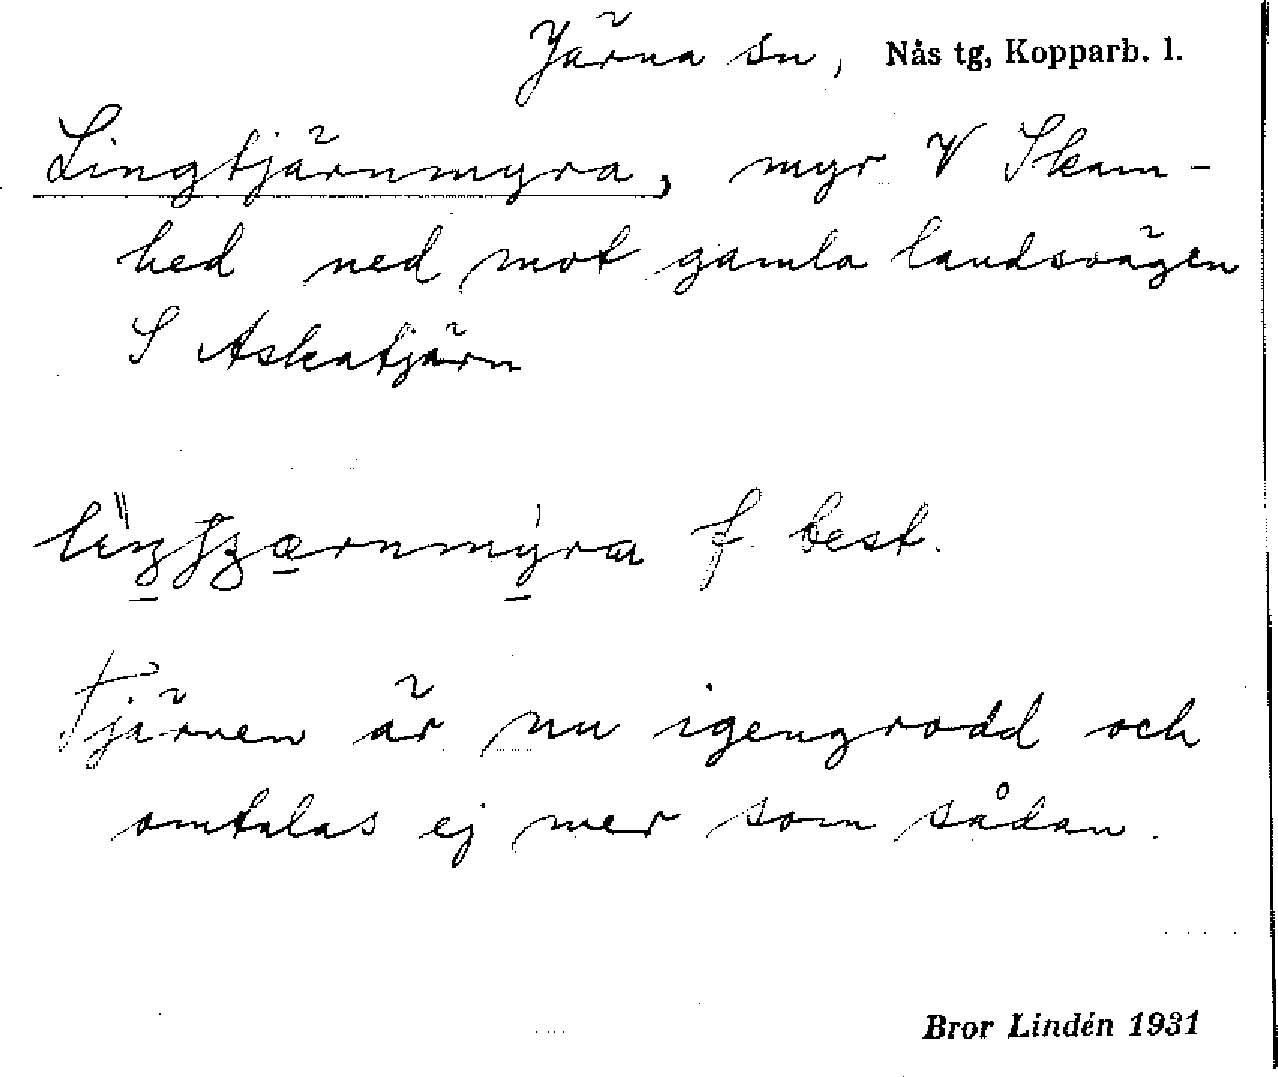 Järna sn, Nås tg, Kopparb. l.
Lingtjärnmyra, myr V Skam-
hed ned mot gamla landsvägen
S Askatjärn
f. best.
Tjärnen är nu igengrodd och
omtalas ej mer som sådan.
Bror Lindén 1931